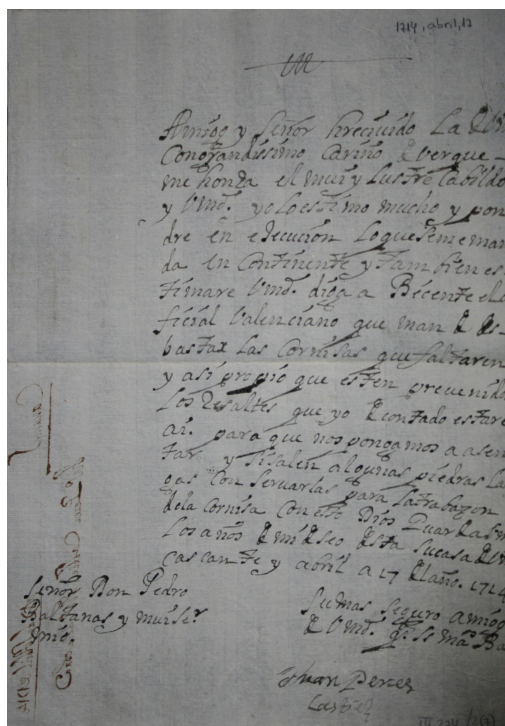 1714, abril, 17
Amigo y Señor he reciuido La de Vm
Con grandissimo Cariño de ver que
me honrra el muiy Lustre Cabildo
y Vmd. yo lo estimo mucho y pon
dre en ejecucion Lo que se me man
da En Continente y tambien es
timare Vmd. diga a Bicente el o
ficial Valenciano que man de des
bastar Las Cornisas que faltaren
y asi propio que esten preuenido
Los Resaltes que yo de contado estare
ai. para que nos pongamos a asen
tar y si salen algunas piedras La
gas Conseruarlas para La trabazon
de la Cornisa Con esto Dios Guarde a Vm
Los años de mi deseo desta su casa de
Cascante y abril a 17 del año. 1714
Señor Don Pedro
Baltanas y mui Sr
mio.
Su mas Seguro amigo
de Vmd. q. su ma. Ba
Juan Perez